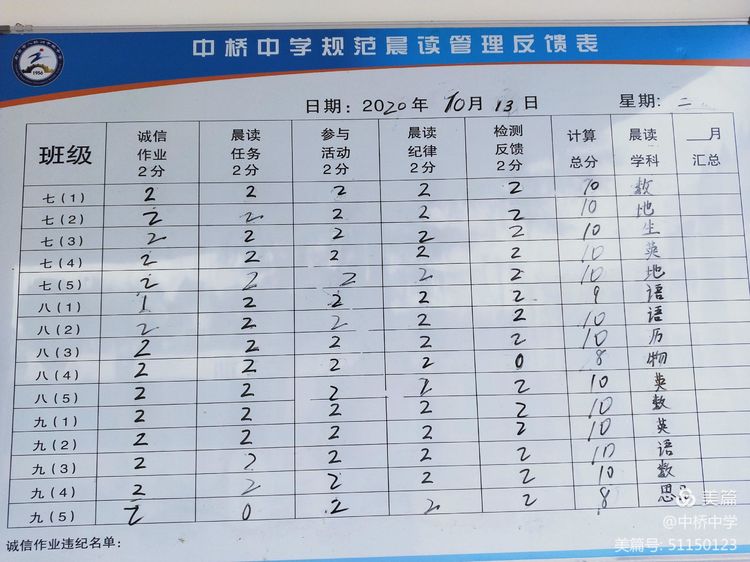 中桥中学规范晨读管理反馈表
日期：2020年 10月 13日 星期：二
班级 诚信作业2分 晨读任务2分 参与活动2分 晨读纪律2分 检测反馈2分 计算总分 晨读学科 __月汇总
七(1) 2 2 2 2 2 10 数
七(2) 2 2 2 2 2 10 地
七(3) 2 2 2 2 2 10 生
七(4) 2 2 2 2 2 10 英
七(5) 2 2 2 2 2 10 地
八(1) 1 2 2 2 2 9 语
八(2) 2 2 2 2 2 10 语
八(3) 2 2 2 2 2 10 历
八(4) 2 2 2 2 0 8 物
八(5) 2 2 2 2 2 10 英
九(1) 2 2 2 2 2 10 数
九(2) 2 2 2 2 2 10 英
九(3) 2 2 2 2 2 10 语
九(4) 2 2 2 2 2 10 数
九(5) 2 0 2 2 2 8 思
诚信作业违纪名单：
1956
美篇
@中桥中学
美篇号: 51150123